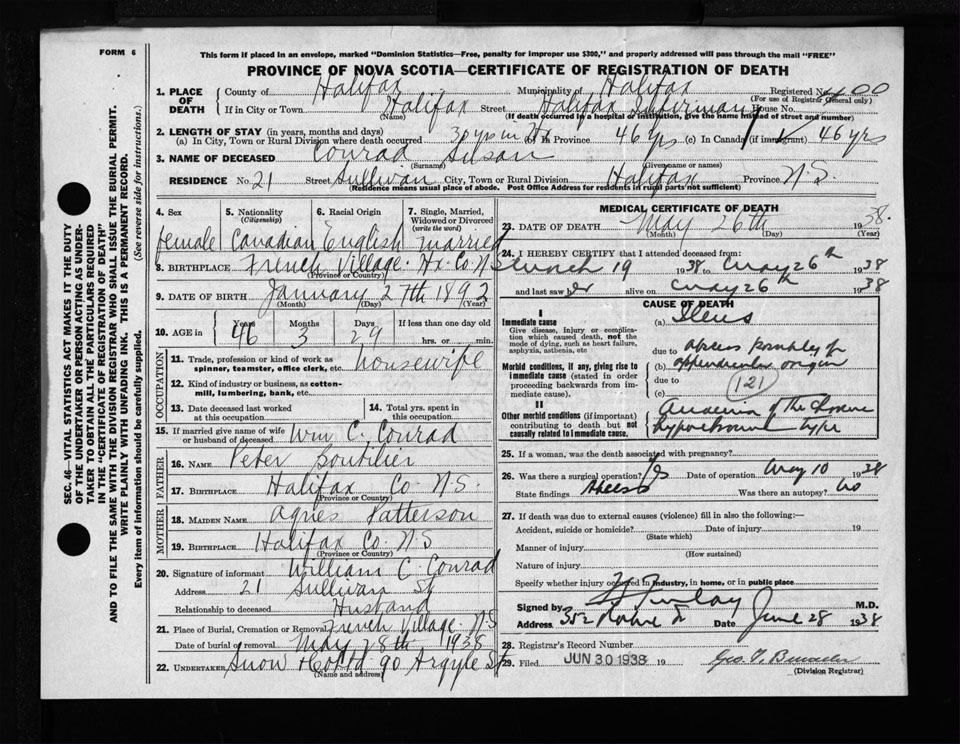 FORM 6
This form if placed in an envelope, marked "Dominion Statistics—Free, penalty for improper use $300," and properly addressed will pass through the mail "FREE"
PROVINCE OF NOVA SCOTIA—CERTIFICATE OF REGISTRATION OF DEATH
SEC. 46—VITAL STATISTICS ACT MAKES IT THE DUTY
OF THE UNDERTAKER OR PERSON ACTING AS UNDER-
TAKER TO OBTAIN ALL THE PARTICULARS REQUIRED
IN THE "CERTIFICATE OF REGISTRATION OF DEATH"
AND TO FILE THE SAME WITH THE DIVISION REGISTRAR WHO SHALL ISSUE THE BURIAL PERMIT.
WRITE PLAINLY WITH UNFADING INK. THIS IS A PERMANENT RECORD.
Every item of information should be carefully supplied. (See reverse side for instructions.)
1. PLACE OF DEATH
County of Halifax Municipality of Halifax Registered No. 400
(For use of Registrar General only)
If in City or Town Halifax Street Halifax Infirmary House No.
(Name) (If death occurred in a hospital or institution, give the name instead of street and number)
2. LENGTH OF STAY (in years, months and days)
(a) In City, Town or Rural Division where death occurred 30 yrs in Hx (b) In Province 46 yrs (c) In Canada (if immigrant) 46 yrs
3. NAME OF DECEASED Conrad Susan
(Surname) (Given name or names)
RESIDENCE No. 21 Street Sullivan City, Town or Rural Division Halifax Province N.S.
(Residence means usual place of abode. Post Office Address for residents in rural parts not sufficient)
4. Sex female
5. Nationality (Citizenship) Canadian
6. Racial Origin English
7. Single, Married, Widowed or Divorced (write the word) married
8. BIRTHPLACE French Village Hx Co N S
(Province or Country)
9. DATE OF BIRTH January 27th 1892
(Month) (Day) (Year)
10. AGE in Years Months Days If less than one day old
46 3 29 hrs. or min.
OCCUPATION
11. Trade, profession or kind of work as spinner, teamster, office clerk, etc. housewife
12. Kind of industry or business, as cotton-mill, lumbering, bank, etc.
13. Date deceased last worked at this occupation
14. Total yrs. spent in this occupation
15. If married give name of wife or husband of deceased Wm C. Conrad
FATHER
16. NAME Peter Boutilier
17. BIRTHPLACE Halifax Co N.S.
(Province or Country)
MOTHER
18. MAIDEN NAME Agnes Patterson
19. BIRTHPLACE Halifax Co N S
(Province or Country)
20. Signature of informant William C. Conrad
Address 21 Sullivan St
Relationship to deceased Husband
21. Place of Burial, Cremation or Removal French Village N S
Date of burial or removal May 28th 1938
22. UNDERTAKER Snow & Co Ltd 90 Argyle St
(Name and address)
MEDICAL CERTIFICATE OF DEATH
23. DATE OF DEATH May 26th 1938.
(Month) (Day) (Year)
24. I HEREBY CERTIFY that I attended deceased from:
March 19 1938 to May 26th 1938
and last saw her alive on May 26th 1938
CAUSE OF DEATH
I
Immediate cause
Give disease, injury or complication which caused death, not the mode of dying, such as heart failure, asphyxia, asthenia, etc
(a) Ileus
due to
Morbid conditions, if any, giving rise to immediate cause (stated in order proceeding backwards from immediate cause).
(b) Abscess Possibly of appendicular origin
due to (121)
(c)
II
Other morbid conditions (if important) contributing to death but not causally related to immediate cause.
Anaemia of the
hypochromic type
25. If a woman, was the death associated with pregnancy?
26. Was there a surgical operation? Yes Date of operation May 10 1938
State findings Abscess Was there an autopsy? No
27. If death was due to external causes (violence) fill in also the following:—
Accident, suicide or homicide? Date of injury 19
(State which)
Manner of injury
(How sustained)
Nature of injury
Specify whether injury occurred in industry, in home, or in public place
Signed by Finlay M.D.
Address 352 Robie St Date June 28 1938
28. Registrar's Record Number
29. Filed JUN 30 1938 19
(Division Registrar)